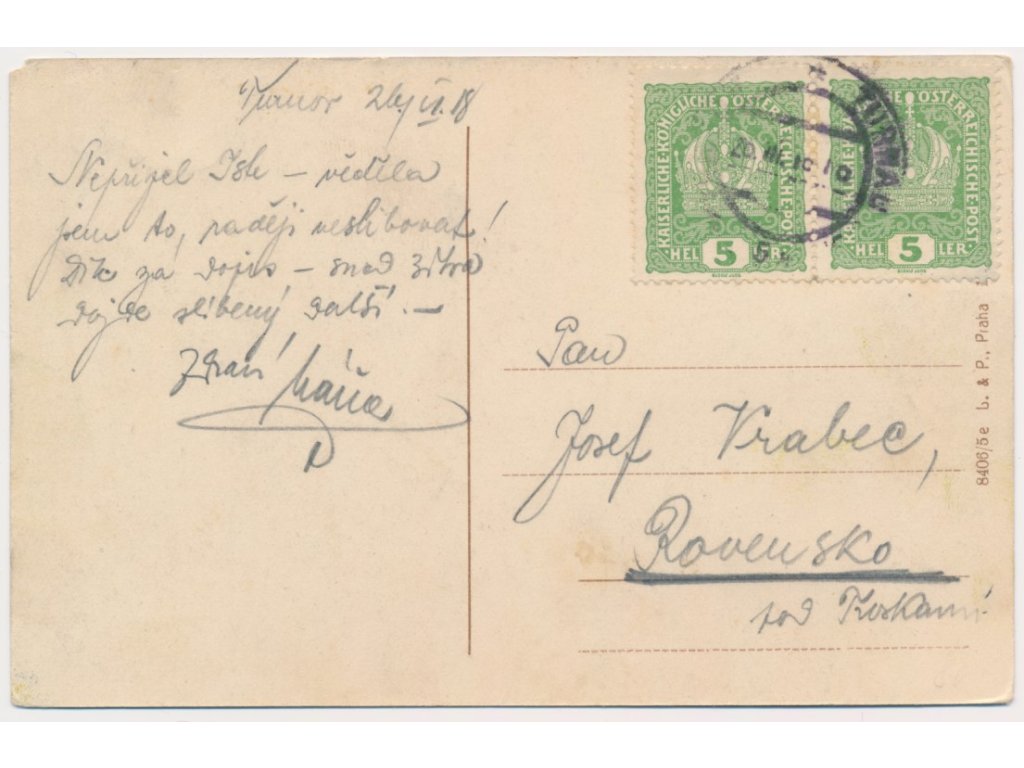 Turnov 26/IV.18
Nepřijel Jste – věděla
jsem to, raději neslibovat!
Dík za dopis – snad zítra
dojde slíbený další. –
Zdraví Máňa
KAISERLICHE KÖNIGLICHE ÖSTERREICHISCHE POST
5
HELLER
KAISERLICHE KÖNIGLICHE ÖSTERREICHISCHE POST
5
HELLER
TURNAU
Pan
Josef Vrabec,
Rovensko
pod Troskami
8406/5e L. & P., Praha